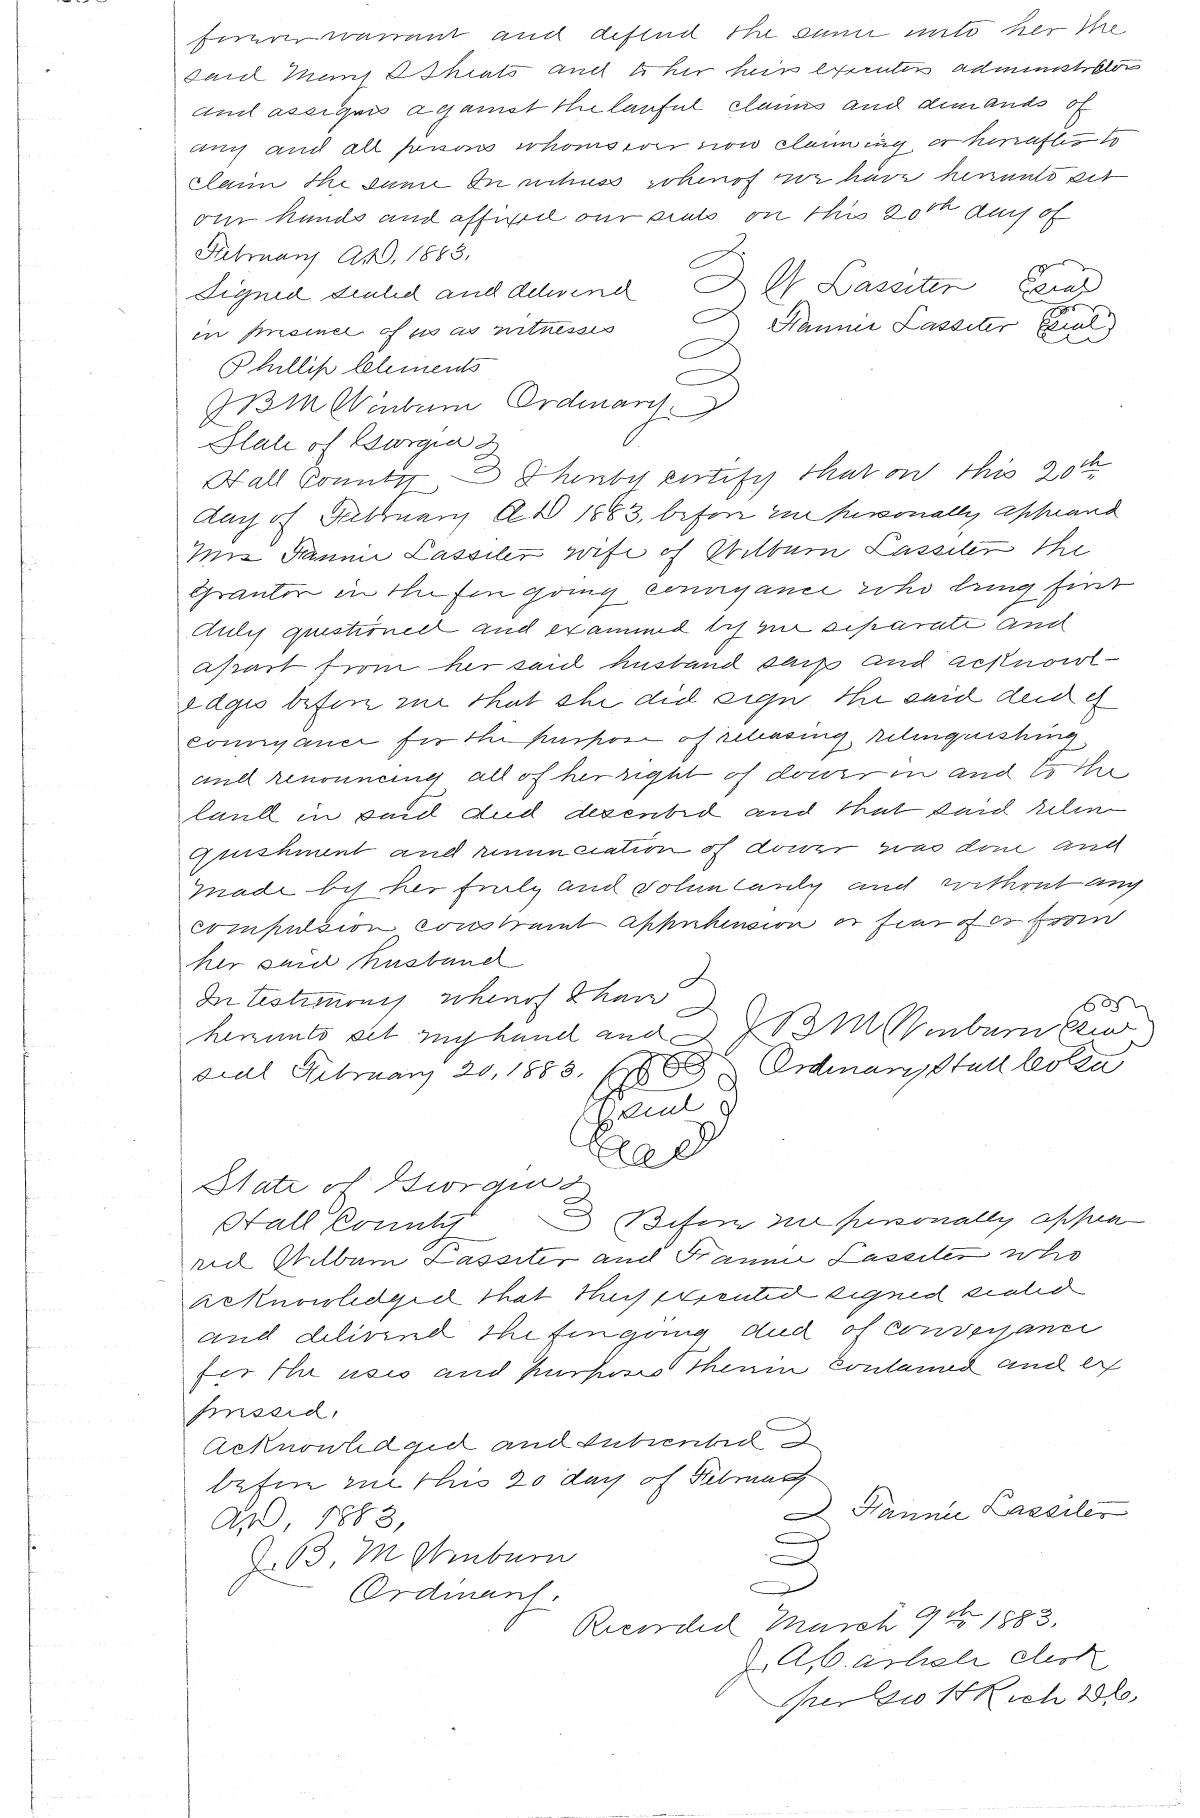 forever warrant and defend the same unto her the
said Mary E Sheats and to her heirs executors administrators
and assigns against the lawful claims and demands of
any and all persons whomsoever now claiming or hereafter to
claim the same In witness whereof we have hereunto set
our hands and affixed our seals on this 20th day of
February A.D. 1883.
Signed sealed and delivered W Lassiter Seal
in presence of us as witnesses Fannie Lassiter Seal
Phillip Clements
J B M Winburn Ordinary.
State of Georgia
Hall County I hereby certify that on this 20th
day of February A D 1883, before me personally appeared
Mrs Fannie Lassiter wife of Wilburn Lassiter the
Grantor in the foregoing conveyance who being first
duly questioned and examined by me separate and
apart from her said husband says and acknowl-
edges before me that she did sign the said deed of
conveyance for the purpose of releasing, relinquishing
and renouncing all of her right of dower in and to the
land in said deed described and that said relin
quishment and renunciation of dower was done and
made by her freely and voluntarily and without any
compulsion constraint apprehension or fear of or from
her said husband
In testimony whereof I have
hereunto set my hand and J B M Winburn Seal
seal February 20, 1883. Ordinary Hall Co Ga
Seal
State of Georgia
Hall County Before me personally appea
red Wilburn Lassiter and Fannie Lassiter who
acknowledged that they executed signed sealed
and delivered the foregoing deed of conveyance
for the uses and purposes therein contained and ex
pressed.
Acknowledged and subscribed
before me this 20 day of February
A.D, 1883, Fannie Lassiter
J. B. M Winburn
Ordinary.
Recorded March 9th 1883.
J. A, Carlisle clerk
per Geo H Rich D.C.